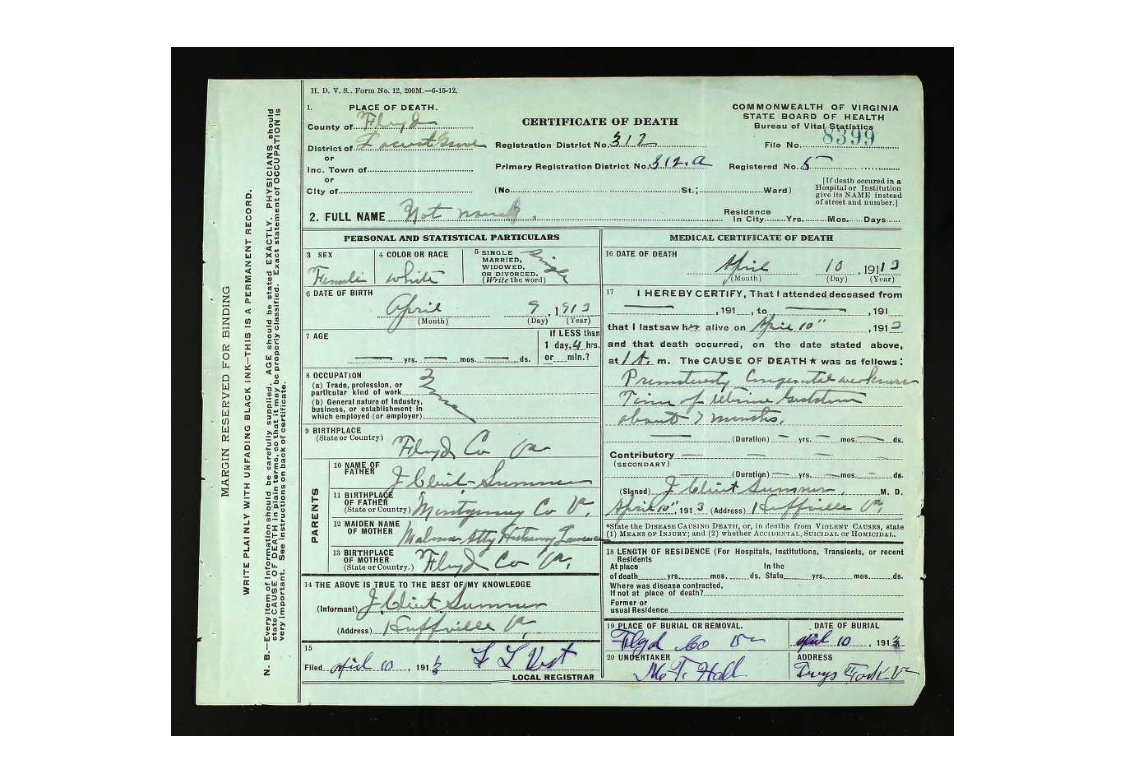 H. D. V. S., Form No. 12, 200M.—6-15-12.
1. PLACE OF DEATH.
County of Floyd
District of Locust Grove
or
Inc. Town of
or
City of
CERTIFICATE OF DEATH
Registration District No. 312
Primary Registration District No. 312.a
(No. St.; Ward)
COMMONWEALTH OF VIRGINIA
STATE BOARD OF HEALTH
Bureau of Vital Statistics
8399
File No.
Registered No. 5
[If death occured in a
Hospital or Institution
give its NAME instead
of street and number.]
2. FULL NAME Not named.
Residence
In City Yrs. Mos. Days
PERSONAL AND STATISTICAL PARTICULARS
3 SEX
Female
4 COLOR OR RACE
white
5 SINGLE
MARRIED,
WIDOWED,
OR DIVORCED.
(Write the word)
Single
6 DATE OF BIRTH
April 9, 1913
(Month) (Day) (Year)
7 AGE
yrs. mos. ds.
If LESS than
1 day, 4 hrs.
or min.?
8 OCCUPATION
(a) Trade, profession, or
particular kind of work
(b) General nature of Industry,
business, or establishment in
which employed (or employer)
9 BIRTHPLACE
(State or Country) Floyd Co Va
PARENTS
10 NAME OF
FATHER J Clint Sumner
11 BIRTHPLACE
OF FATHER
(State or Country) Montgomery Co Va
12 MAIDEN NAME
OF MOTHER
13 BIRTHPLACE
OF MOTHER
(State or Country.) Floyd Co Va,
14 THE ABOVE IS TRUE TO THE BEST OF MY KNOWLEDGE
(Informant) J Clint Sumner
(Address) Huffville Va,
15
Filed april 10, 1913 LOCAL REGISTRAR
MEDICAL CERTIFICATE OF DEATH
16 DATE OF DEATH
April 10, 1913
(Month) (Day) (Year)
17 I HEREBY CERTIFY, That I attended deceased from
, 191 , to , 191
that I last saw her alive on April 10", 1913
and that death occurred, on the date stated above,
at 1 A. m. The CAUSE OF DEATH★ was as follows:
Prematurity Congenital weakness
Time of Uterine Gestation
about 7 months.
(Duration) yrs. mos. ds.
Contributory
(SECONDARY)
(Duration) yrs. mos. ds.
(Signed) J Clint Sumner, M. D.
April 10", 1913 (Address) Huffville Va,
*State the DISEASE CAUSING DEATH, or, in deaths from VIOLENT CAUSES, state
(1) MEANS OF INJURY; and (2) whether ACCIDENTAL, SUICIDAL or HOMICIDAL.
18 LENGTH OF RESIDENCE (For Hospitals, Institutions, Transients, or recent
Residents
At place In the
of death yrs. mos. ds. State yrs. mos. ds.
Where was disease contracted,
If not at place of death?
Former or
usual Residence
19 PLACE OF BURIAL OR REMOVAL.
Floyd Co Va
DATE OF BURIAL
april 10, 1913
20 UNDERTAKER
Hall
ADDRESS
Fork Va
MARGIN RESERVED FOR BINDING
WRITE PLAINLY WITH UNFADING BLACK INK—THIS IS A PERMANENT RECORD.
N. B.—Every item of Information should be carefully supplied. AGE should be stated EXACTLY. PHYSICIANS should
state CAUSE OF DEATH in plain terms, so that it may be properly classified. Exact statement of OCCUPATION is
very important. See instructions on back of certificate.